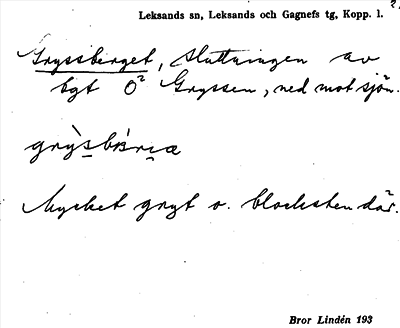 Leksands sn, Leksands och Gagnefs tg, Kopp. l.
Gryssberget, sluttningen av
bgt Ö² Gryssen, ned mot sjön.
Mycket gryt o. blocksten där.
Bror Lindén 193